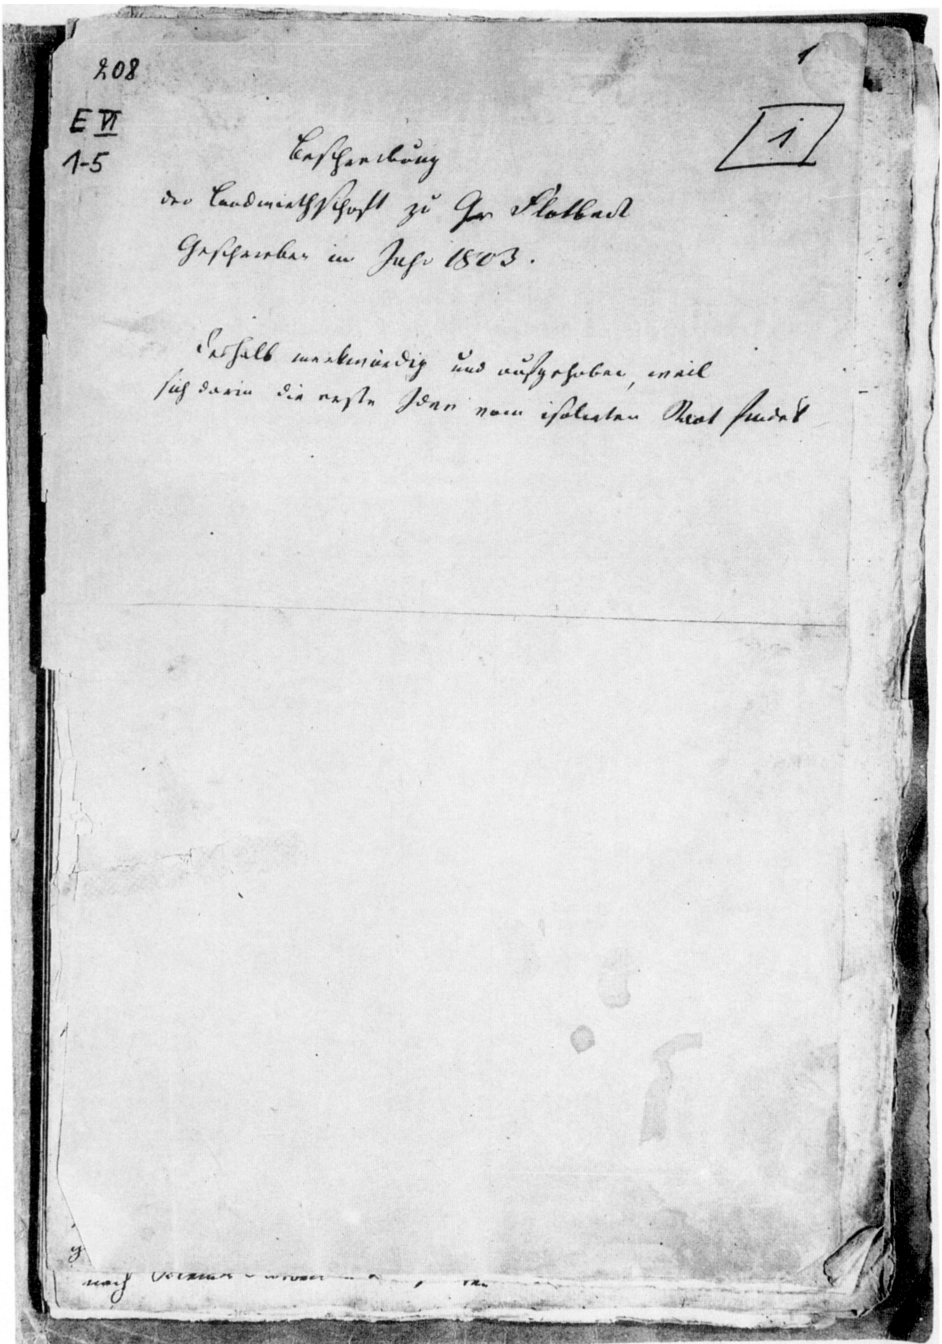 208
1
E VI
1-5
1
Beschreibung
der Landwirthschaft zu Gr Flotbeck
Geschrieben im Jahr 1803.
Deshalb merkwürdig und aufgehoben, weil
sich darin die erste Idee vom isolirten Staat findet
nach